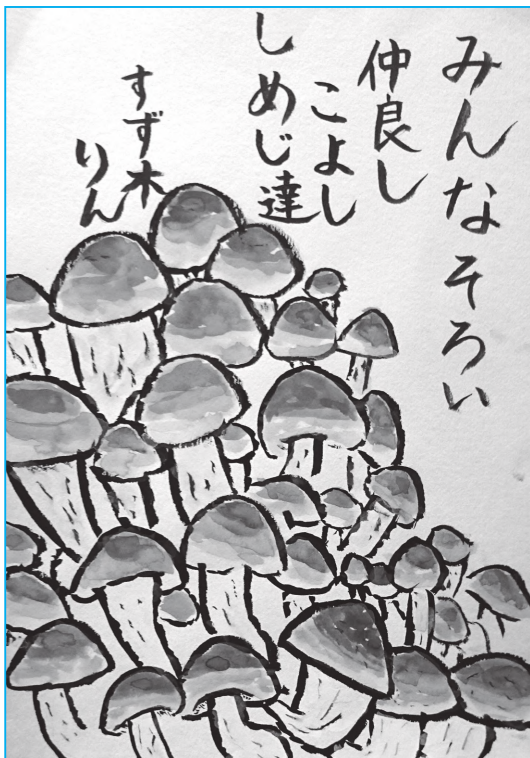 みんなそろい
仲良し
こよし
しめじ達
すず木
りん